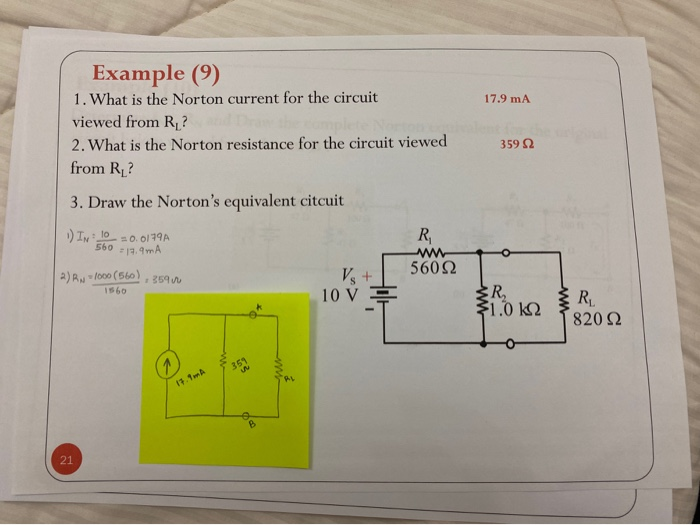 Example (9)
1. What is the Norton current for the circuit
viewed from RL?
17.9 mA
2. What is the Norton resistance for the circuit viewed
from RL?
359 Ω
3. Draw the Norton's equivalent citcuit
1) IN = 10/560 = 0.0179A
= 17.9mA
2) RN = 1000(560)/1560 = 359Ω
R1
560Ω
Vs +
10 V
-
R2
1.0 kΩ
RL
820 Ω
A
17.9mA
359
Ω
RL
B
21